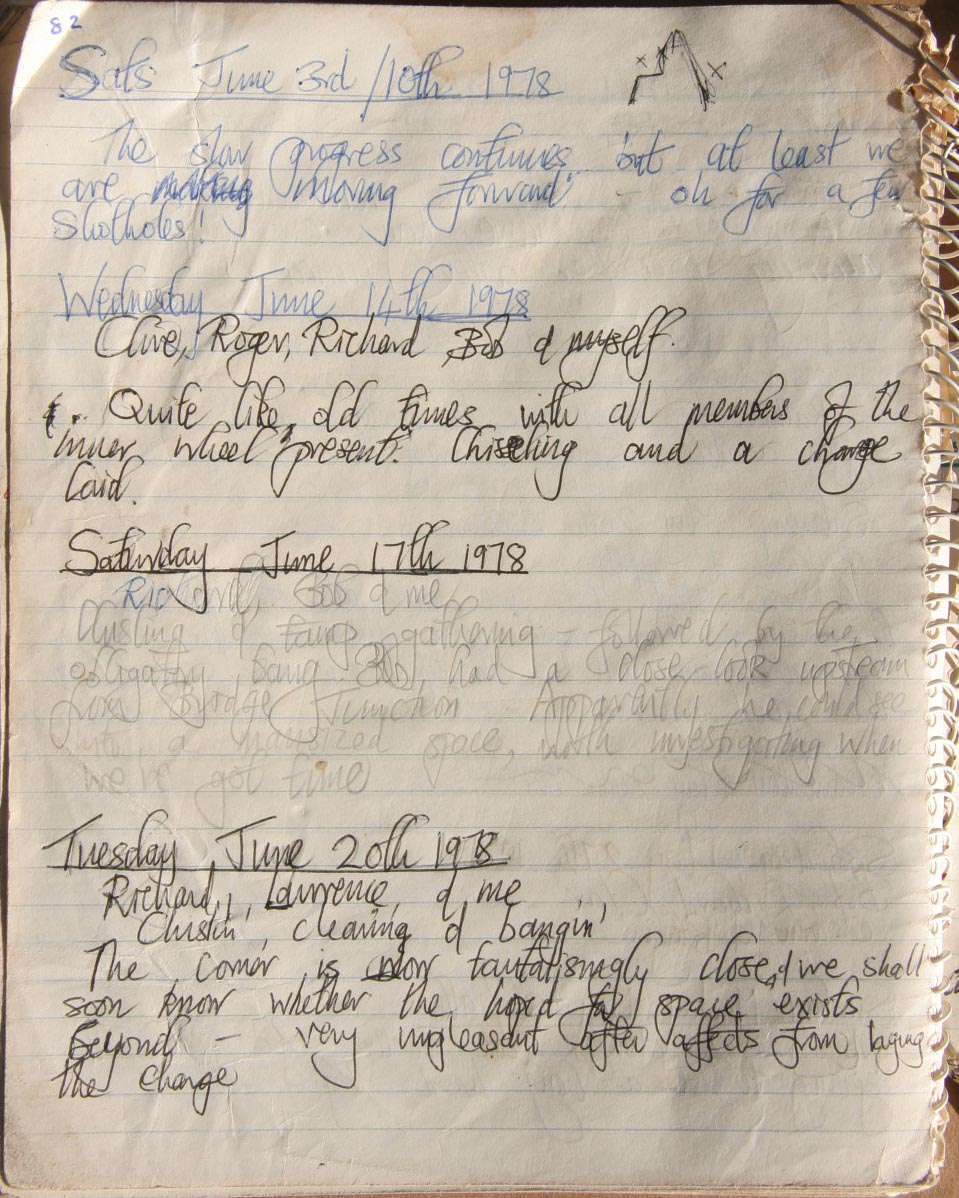 82
Sats June 3rd/10th 1978
The slow progress continues but at least we
are moving forward - oh for a few
Shotholes!
Wednesday June 14th 1978
Clive, Roger, Richard, Bob & myself.
Quite like old times with all members of the
inner wheel present. Chiseling and a charge
laid.
Saturday June 17th 1978
Bob & me
& gathering - followed by the
obligatory bang. Bob, had a close look upsteam
from Bridge Junction - Apparantly he could see
into a space, worth investigating when
we've got time
Tuesday, June 20th 1978
Richard, Lawrence, & me
Chislin', clearing & bangin'
The corner is now tantalisingly close, & we shall
soon know whether the hoped for space exists
Beyond - very unpleasant after affects from laying
the charge